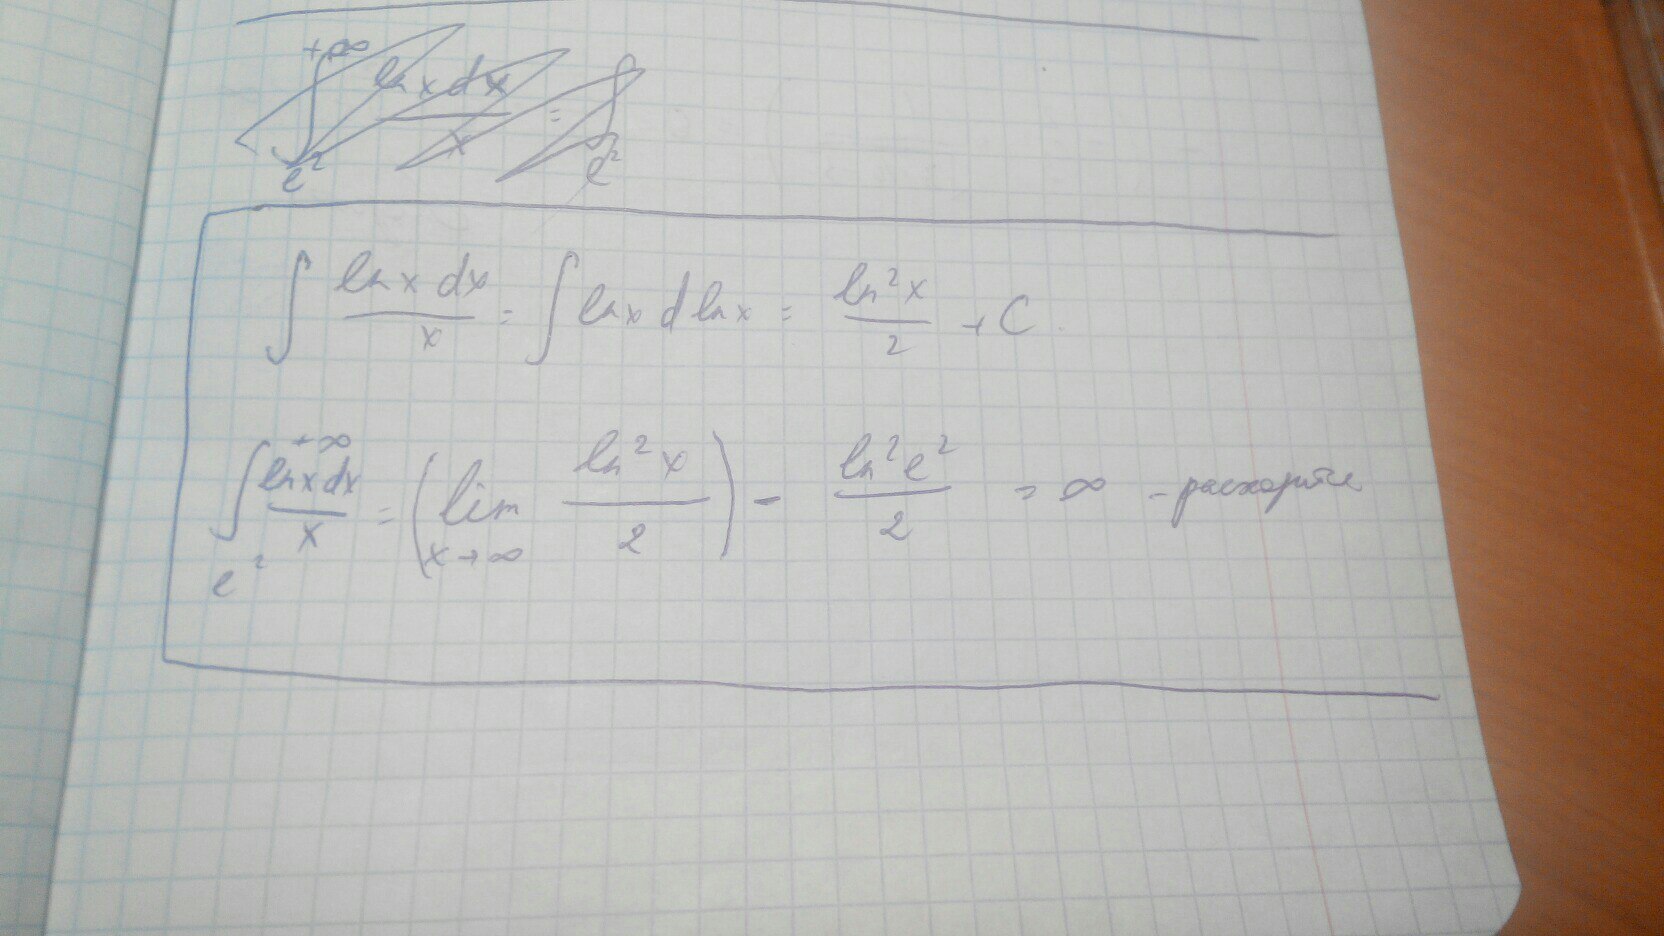 ∫_{e²}^{+∞} ln x dx / x = ∫_{e²}
∫ ln x dx / x = ∫ ln x d ln x = ln² x / 2 + C.
∫_{e²}^{+∞} ln x dx / x = ( lim_{x→∞} ln² x / 2 ) - ln² e² / 2 = ∞ - расходится